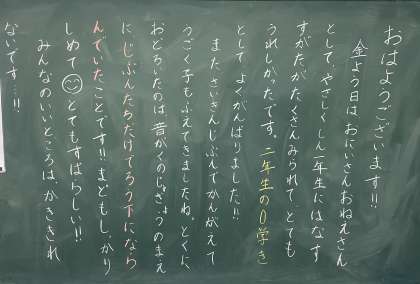 おはようございます!!
金よう日は、おにいさんおねえさん
として、やさしくしん一年生にはなす
すがたがたくさんみられて、とても
うれしかったです。二年生の0学き
としてよくがんばりました!!
また、さいきんじぶんでかんがえて
うごく子もふえてきましたね。とくに
おどろいたのは、音がくのじゅぎょうのまえ
に、じぶんたちだけでろう下になら
んでいたことです!!まどもしっかり
しめて☺とてもすばらしい!!
みんなのいいところは、かききれ
ないです…!!